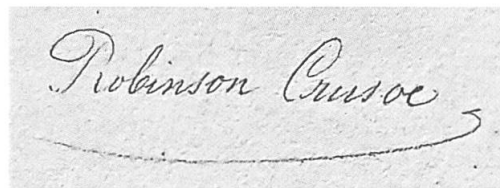 Robinson Crusoe